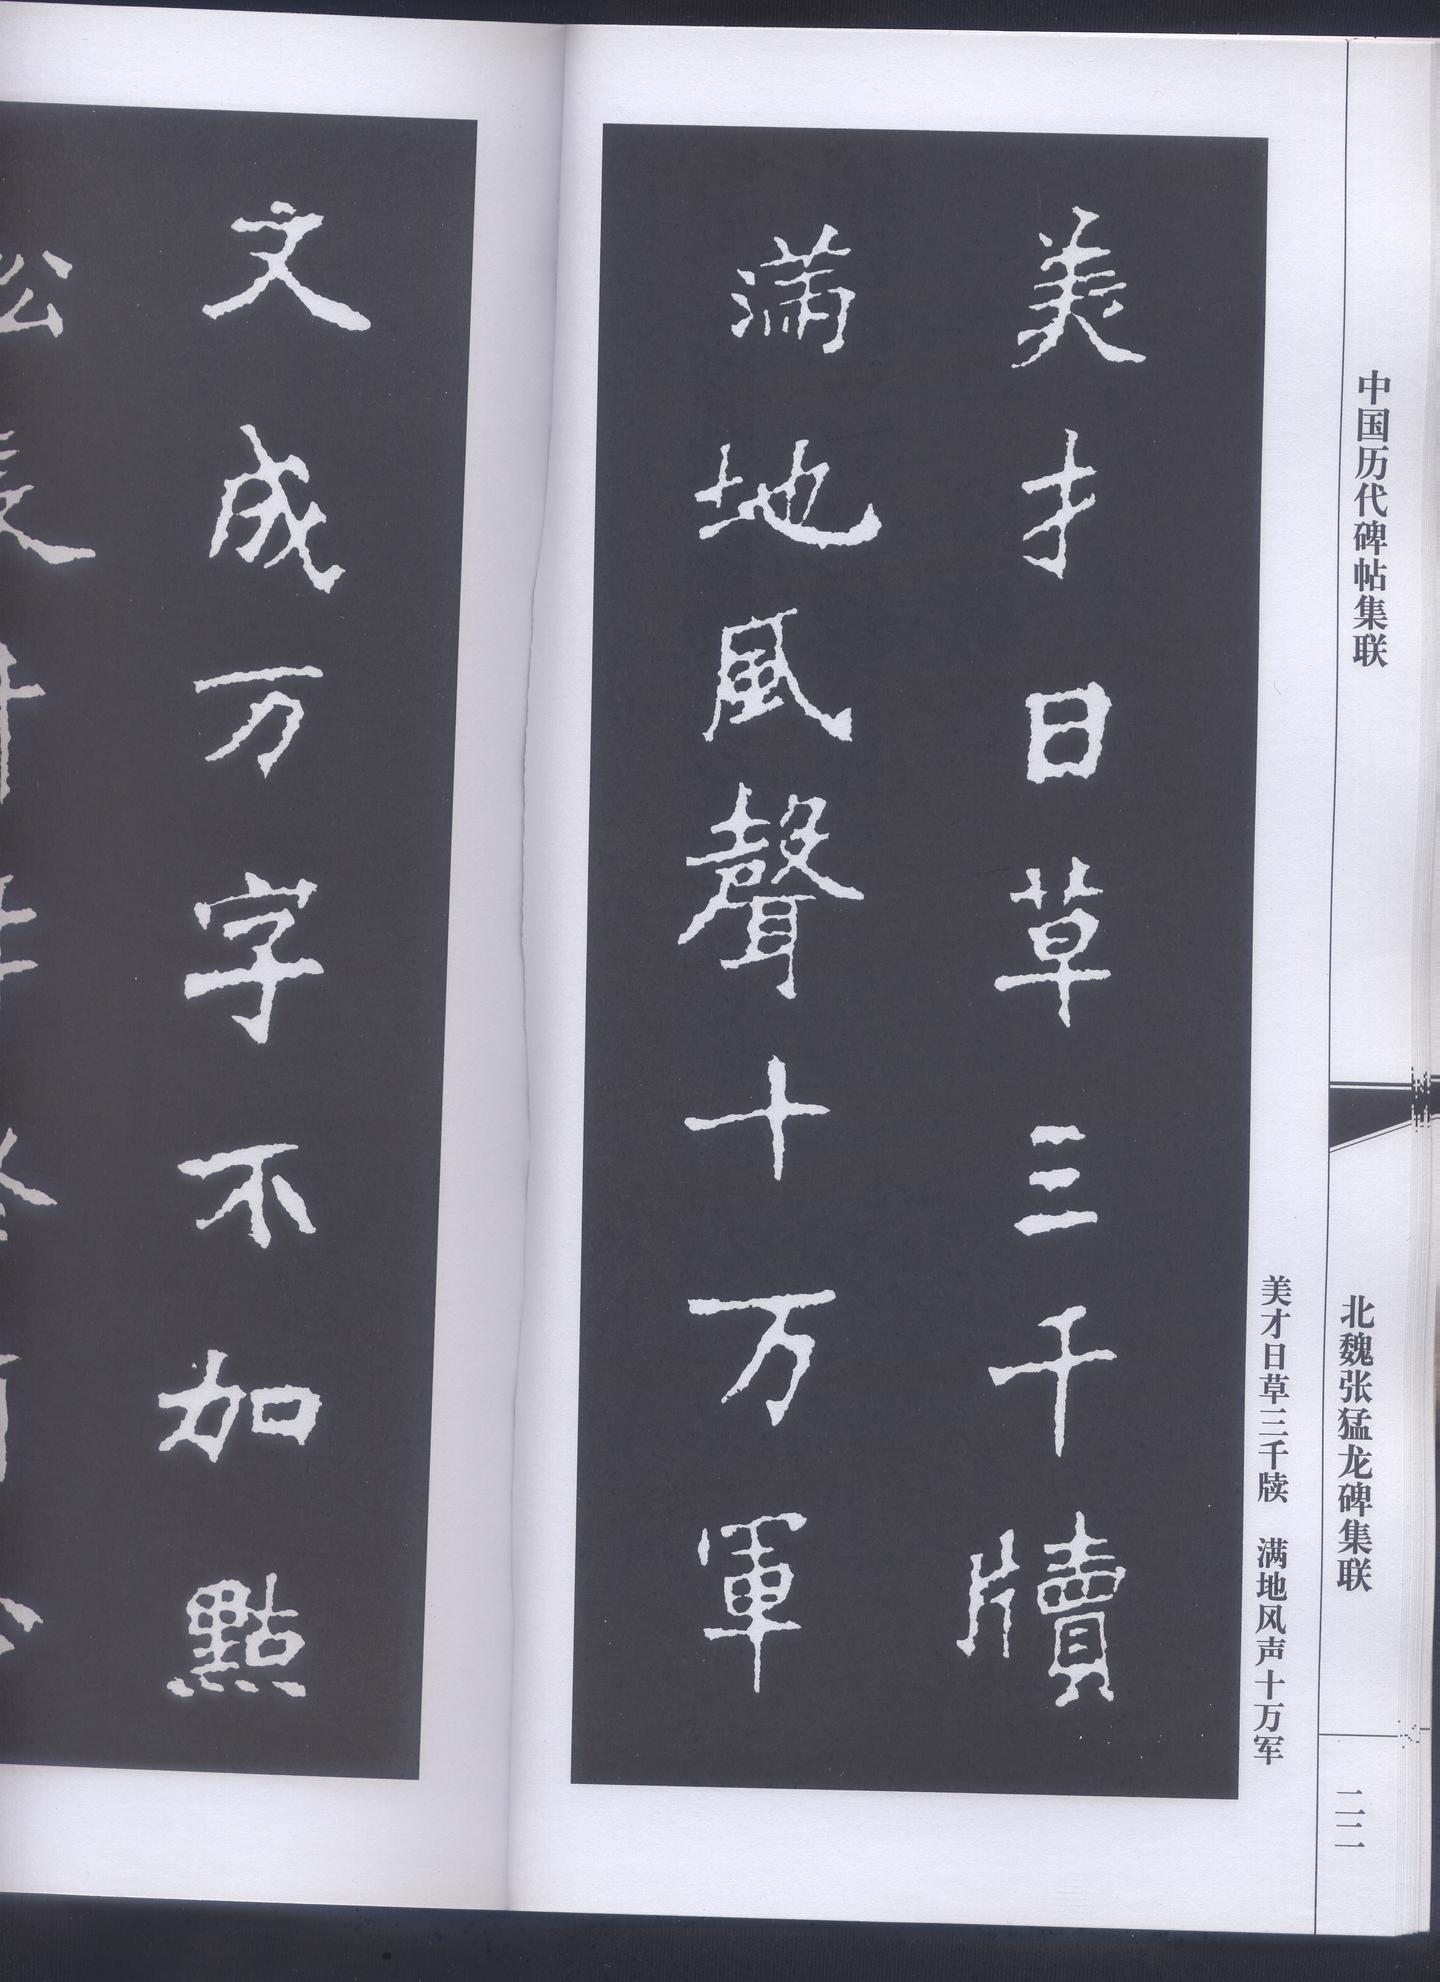 中国历代碑帖集联
北魏张猛龙碑集联
二二
美才日草三千牍 满地风声十万军
美才日草三千牘
满地風聲十万軍
文成万字不加點